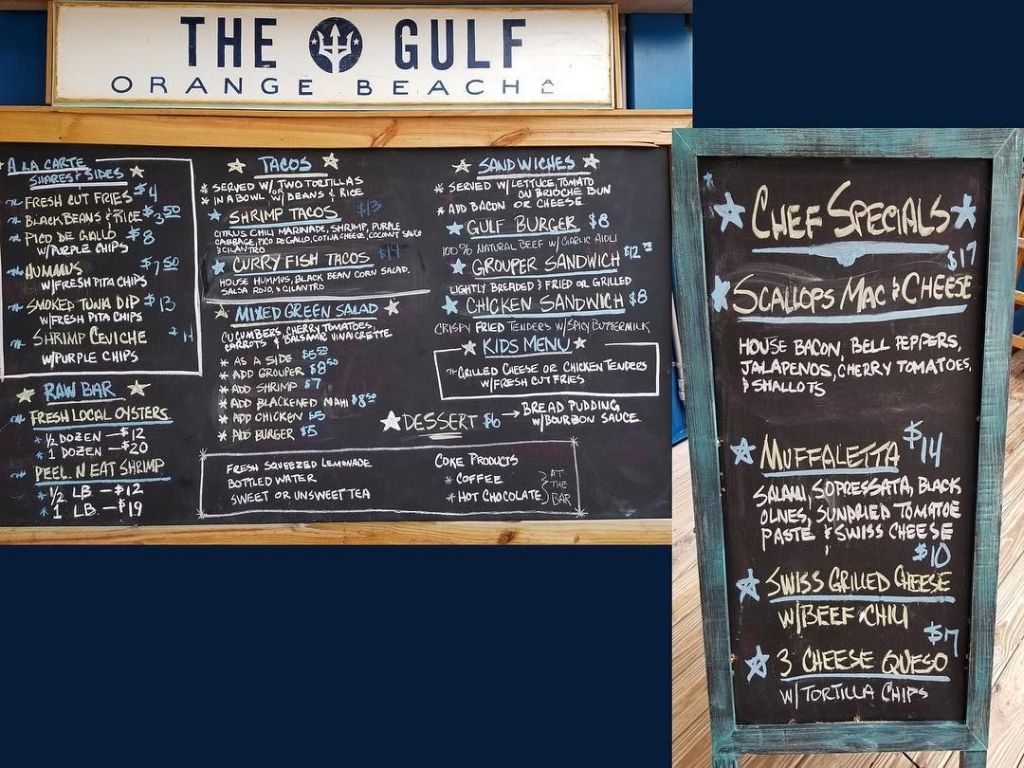 THE GULF
ORANGE BEACH AL
A LA CARTE
SHARES & SIDES
FRESH CUT FRIES $4
BLACK BEANS & RICE $3.50
PICO DE GALLO $8
W/PURPLE CHIPS
HUMMUS $7.50
W/FRESH PITA CHIPS
SMOKED TUNA DIP $13
W/FRESH PITA CHIPS
SHRIMP CEVICHE
W/PURPLE CHIPS
RAW BAR
FRESH LOCAL OYSTERS
* 1/2 DOZEN — $12
* 1 DOZEN — $20
PEEL N EAT SHRIMP
* 1/2 LB — $12
1 LB — $19
TACOS
* SERVED W/ TWO TORTILLAS
* IN A BOWL W/ BEANS & RICE
SHRIMP TACOS $13
CITRUS CHILI MARINADE, SHRIMP, PURPLE
CABBAGE, PICO DE GALLO, COTIJA CHEESE, COCONUT SAUCE
& CILANTRO
CURRY FISH TACOS $14
HOUSE HUMMUS, BLACK BEAN CORN SALAD,
SALSA ROJO, & CILANTRO
MIXED GREEN SALAD
CUCUMBERS, CHERRY TOMATOES,
CARROTS & BALSAMIC VINAIGRETTE
* AS A SIDE
* ADD GROUPER $8.50
* ADD SHRIMP $7
* ADD BLACKENED MAHI $8.50
* ADD CHICKEN $5
* ADD BURGER $5
SANDWICHES
* SERVED W/ LETTUCE, TOMATO
ON BRIOCHE BUN
* ADD BACON OR CHEESE
GULF BURGER $8
100% NATURAL BEEF W/ GARLIC AIOLI
GROUPER SANDWICH
LIGHTLY BREADED & FRIED OR GRILLED
CHICKEN SANDWICH $8
CRISPY FRIED TENDERS W/ SPICY BUTTERMILK
KIDS MENU
GRILLED CHEESE OR CHICKEN TENDERS
W/FRESH CUT FRIES
DESSERT $6 → BREAD PUDDING
W/BOURBON SAUCE
FRESH SQUEEZED LEMONADE
BOTTLED WATER
SWEET OR UNSWEET TEA
COKE PRODUCTS
* COFFEE
* HOT CHOCOLATE
AT
THE
BAR
CHEF SPECIALS
$17
SCALLOPS MAC & CHEESE
HOUSE BACON, BELL PEPPERS,
JALAPENOS, CHERRY TOMATOES,
& SHALLOTS
MUFFALETTA $14
SALAMI, SOPRESSATA, BLACK
OLIVES, SUNDRIED TOMATOE
PASTE & SWISS CHEESE
$10
SWISS GRILLED CHEESE
W/BEEF CHILI
3 CHEESE QUESO
W/TORTILLA CHIPS